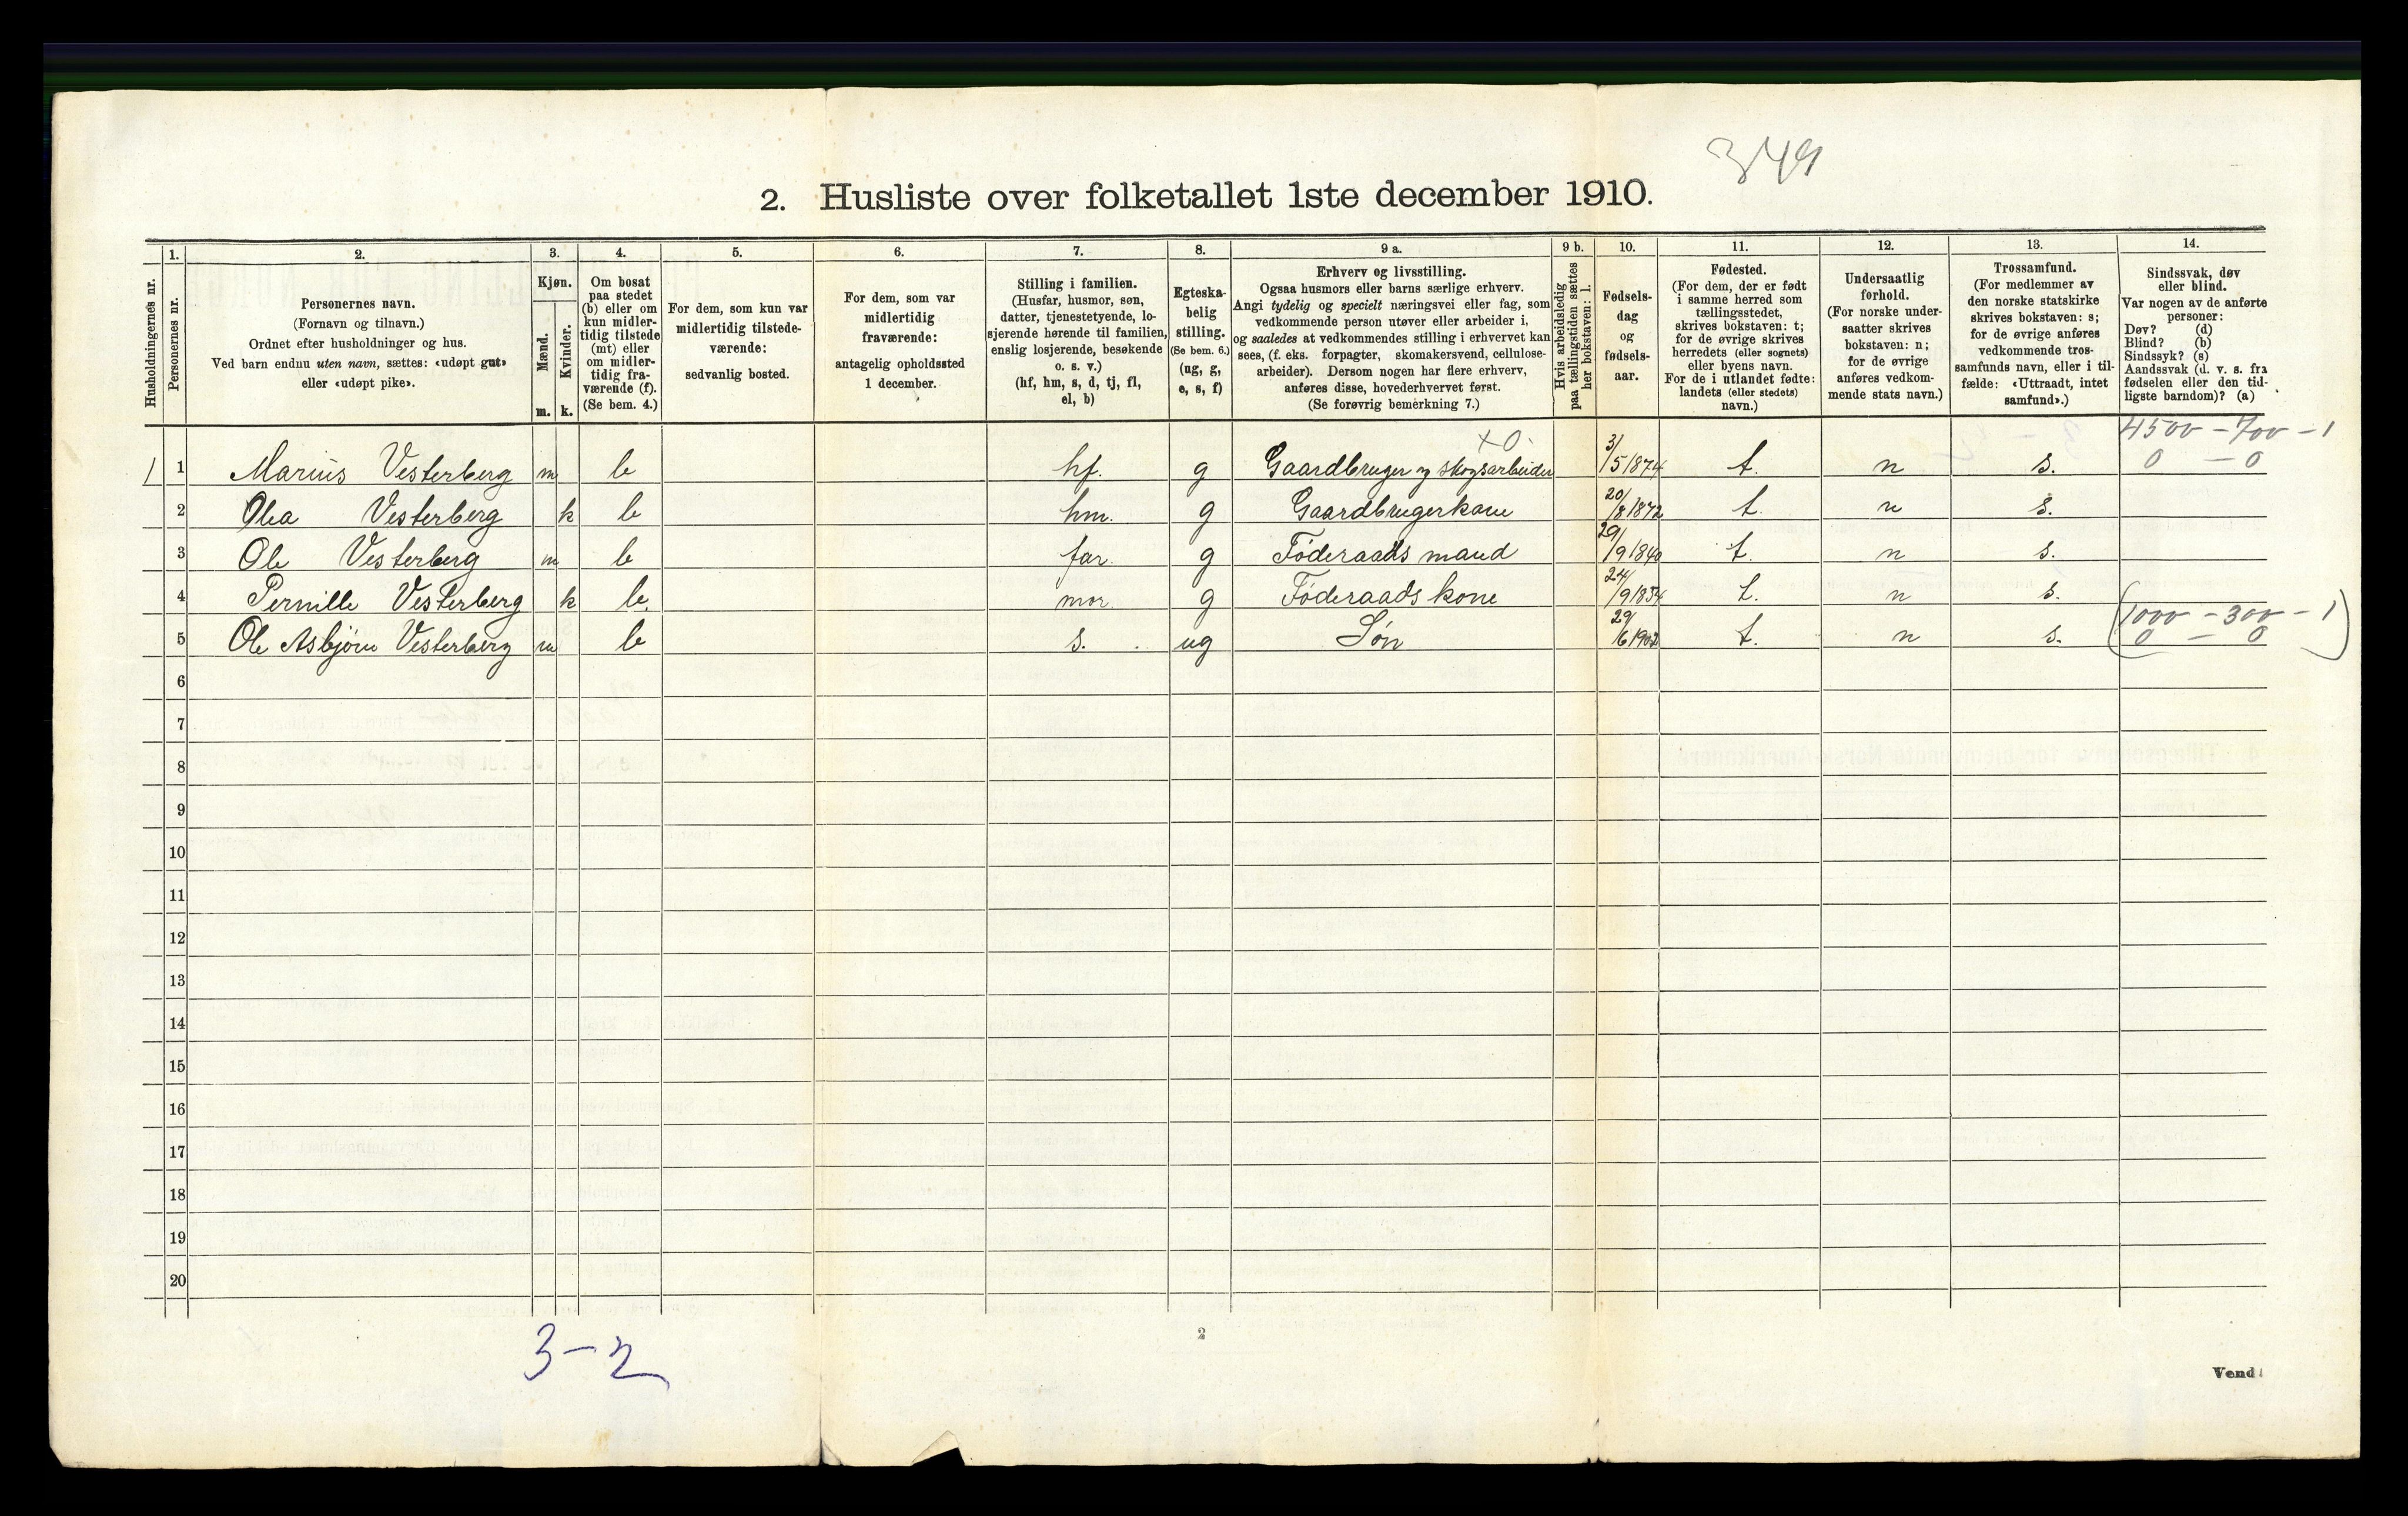 349
2. Husliste over folketallet 1ste december 1910.
Husholdningernes nr.
1.
Personernes nr.
2.
Personernes navn.
(Fornavn og tilnavn.)
Ordnet efter husholdninger og hus.
Ved barn endnu uten navn, sættes: «udøpt gut»
eller «udøpt pike».
3.
Kjøn.
Mænd.
m.
Kvinder.
k.
4.
Om bosat
paa stedet
(b) eller om
kun midler-
tidig tilstede
(mt) eller
om midler-
tidig fra-
værende (f).
(Se bem. 4.)
5.
For dem, som kun var
midlertidig tilstede-
værende:
sedvanlig bosted.
6.
For dem, som var
midlertidig
fraværende:
antagelig opholdssted
1 december.
7.
Stilling i familien.
(Husfar, husmor, søn,
datter, tjenestetyende, lo-
sjerende hørende til familien,
enslig losjerende, besøkende
o. s. v.)
(hf, hm, s, d, tj, fl,
el, b)
8.
Egteska-
belig
stilling.
(Se bem. 6.)
(ug, g,
e, s, f)
9 a.
Erhverv og livsstilling.
Ogsaa husmors eller barns særlige erhverv.
Angi tydelig og specielt næringsvei eller fag, som
vedkommende person utøver eller arbeider i,
og saaledes at vedkommendes stilling i erhvervet kan
sees, (f. eks. forpagter, skomakersvend, cellulose-
arbeider). Dersom nogen har flere erhverv,
anføres disse, hovederhvervet først.
(Se forøvrig bemerkning 7.)
9 b.
Hvis arbeidsledig
paa tællingstiden sættes
her bokstaven: l.
10.
Fødsels-
dag
og
fødsels-
aar.
11.
Fødested.
(For dem, der er født
i samme herred som
tællingsstedet,
skrives bokstaven: t;
for de øvrige skrives
herredets (eller sognets)
eller byens navn.
For de i utlandet fødte:
landets (eller stedets)
navn.)
12.
Undersaatlig
forhold.
(For norske under-
saatter skrives
bokstaven: n;
for de øvrige
anføres vedkom-
mende stats navn.)
13.
Trossamfund.
(For medlemmer av
den norske statskirke
skrives bokstaven: s;
for de øvrige anføres
vedkommende tros-
samfunds navn, eller i til-
fælde: «Uttraadt, intet
samfund».)
14.
Sindssvak, døv
eller blind.
Var nogen av de anførte
personer:
Døv? (d)
Blind? (b)
Sindssyk? (s)
Aandssvak (d. v. s. fra
fødselen eller den tid-
ligste barndom)? (a)
+0. 4500 - 700 - 1
1 1 Marius Vesterberg m b hf. g Gaardbruger og skogsarbeider 3/5 1874 t. n s. 0 - 0
2 Olea Vesterberg k b hm. g Gaardbrugerkone 20/8 1872 t. n s.
3 Ole Vesterberg m b far. g Föderaads mand 29/9 1840 t. n s.
4 Pernille Vesterberg k b. mor. g Föderaads kone 24/9 1834 t. n s.
(1000 - 300 - 1
5 Ole Asbjörn Vesterberg m b s. ug Sön 29/6 1902 t. n s. 0 - 0)
6
7
8
9
10
11
12
13
14
15
16
17
18
19
20
3-2
2
Vend!